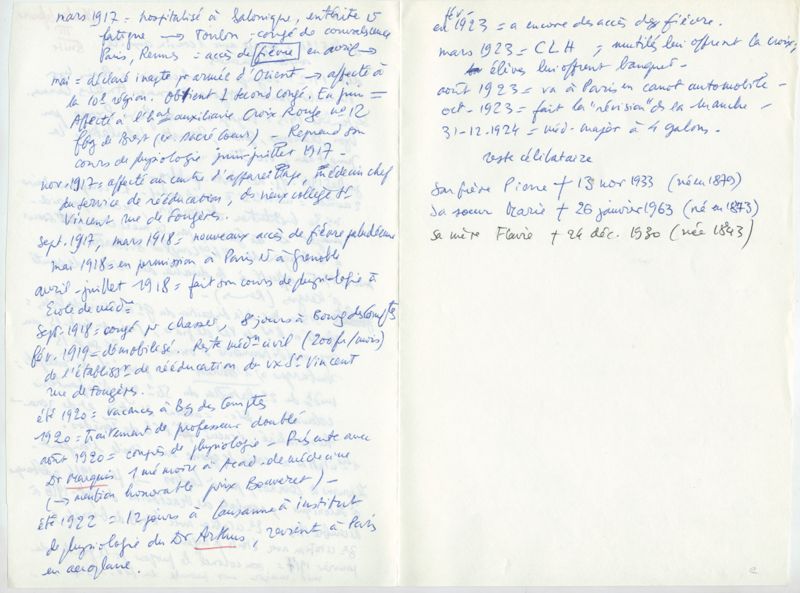 mars 1917 = hospitalisé à Salonique, entérite et
fatigue → Toulon - congé de convalescence
Paris, Rennes = accès de fièvre en avril →
mai = déclaré inapte pr armée d'Orient → affecté à
la 10e région. Obtient 1 second congé. En juin =
Affecté à l'hal auxiliaire Croix Rouge n° 12
fbg de Brest (Sacré Cœur) - Reprend son
cours de physiologie juin-juillet 1917 -
nov. 1917 = affecté au centre d'appareillage, médecin chef
du service de rééducation, vieux collège St
Vincent rue de Fougères.
Sept. 1917, mars 1918 = nouveaux accès de fièvre paludéenne
mai 1918 = en permission à Paris et à Grenoble
avril - juillet 1918 = fait son cours de physiologie à
Ecole de médne
Sept. 1918 = congé pr chasser, 8 jours à Bourg des Comptes
fév. 1919 = démobilisé. Reste médn civil (200 fr/mois)
de l'établisst de rééducation du vx St Vincent
rue de Fougères.
été 1920 = vacances à Bg des Comptes
1920 = traitement de professeur doublé
août 1920 = congrès de physiologie - Présente avec
Dr Marquis 1 mémoire à Acad. de médecine
(→ mention honorable prix Bouveret) -
été 1922 = 12 jours à Lausanne à institut
de physiologie du Dr Arthus, revient à Paris
en aéroplane.
en fév 1923 = a encore des accès de fièvre.
mars 1923 = CLH ; mutilés lui offrent la croix,
élèves lui offrent banquet -
août 1923 = va à Paris en canot automobile -
oct. 1923 = fait la "révision" de la Manche -
31-12-1924 = méd- major à 4 galons -
reste célibataire
Son frère Pierre + 13 nov 1933 (né en 1879)
Sa soeur Marie + 26 janvier 1963 (né en 1873)
Sa mère Flavie + 24 déc. 1930 (née 1843)